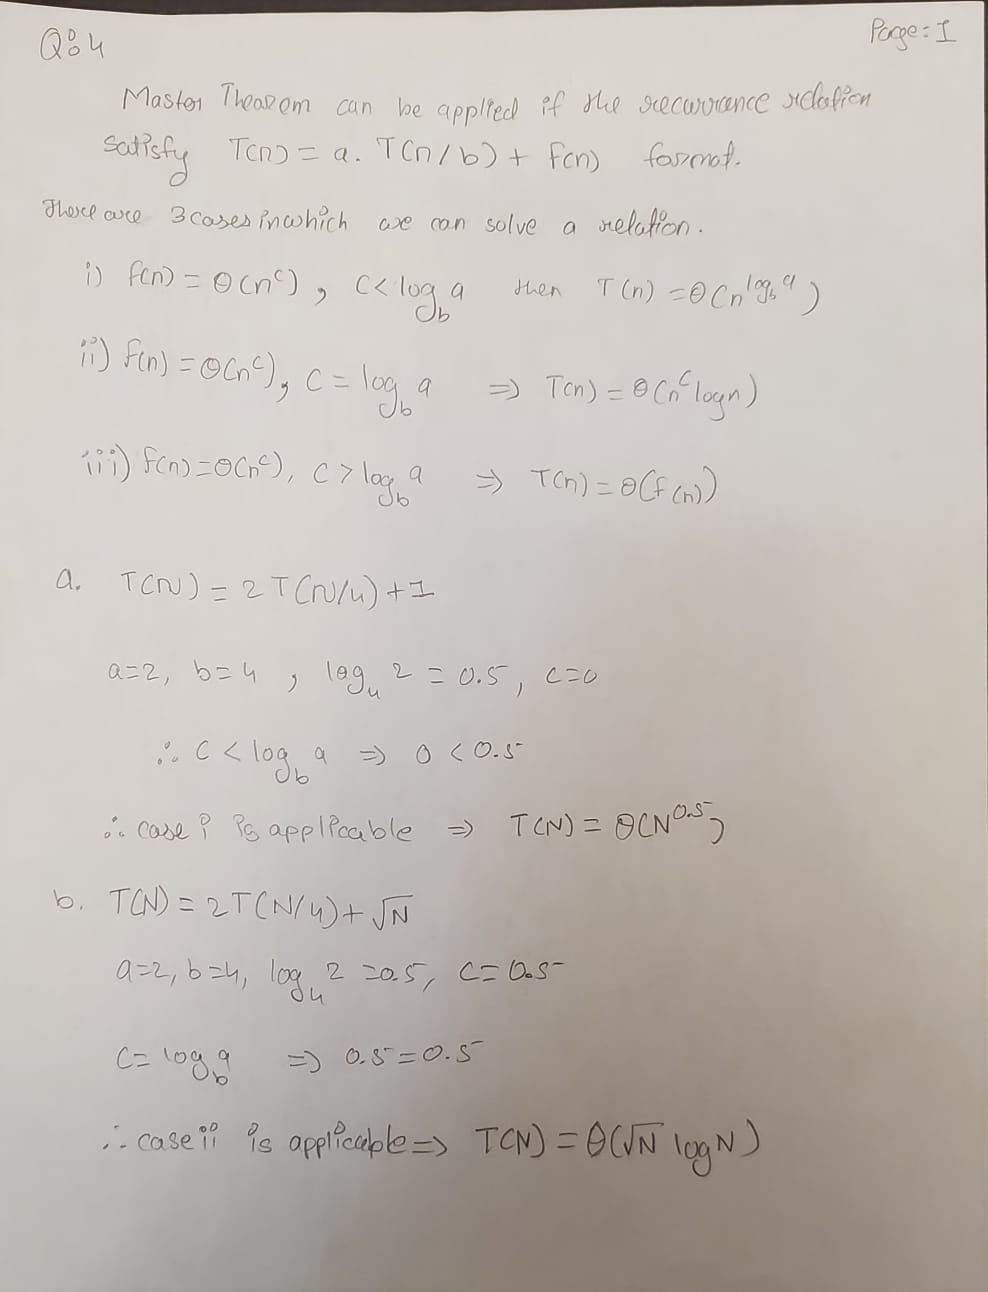 Page: I
Q: 4
Master Theorem can be applied if the recurrance relation
satisfy T(n) = a. T(n/b) + f(n) format.
There are 3 cases in which we can solve a relation.
i) f(n) = Θ(n^c), c < log_b a then T(n) = Θ(n^{log_b a})
ii) f(n) = Θ(n^c), c = log_b a ⇒ T(n) = Θ(n^c log n)
iii) f(n) = Θ(n^c), c > log_b a ⇒ T(n) = Θ(f(n))
a. T(N) = 2T(N/4) + 1
a=2, b=4, log_4 2 = 0.5, c=0
∴ c < log_b a ⇒ 0 < 0.5
∴ case i is applicable ⇒ T(N) = Θ(N^0.5)
b. T(N) = 2T(N/4) + √N
a=2, b=4, log_4 2 = 0.5, c = 0.5
c = log_b a ⇒ 0.5 = 0.5
∴ case ii is applicable ⇒ T(N) = Θ(√N log N)